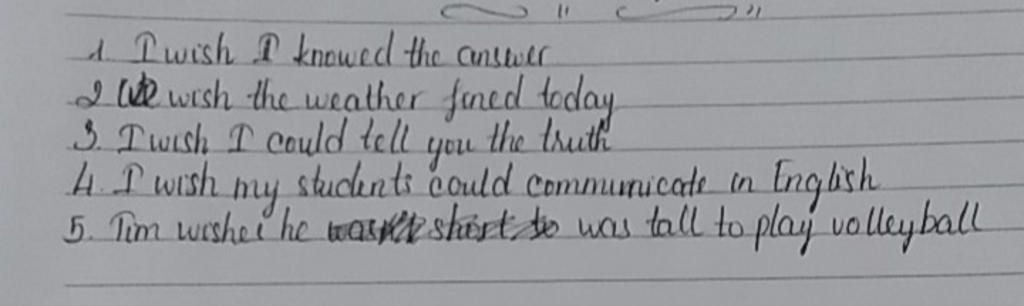 1. I wish I knowed the answer
2 We wish the weather fined today
3. I wish I could tell you the truth
4. I wish my students could communicate in English
5. Tim wishes he short to was tall to play volleyball